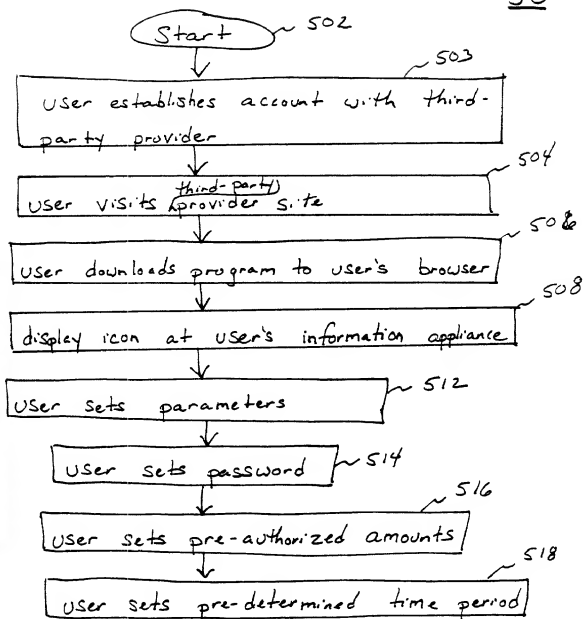 Start 502
503
user establishes account with third-
party provider
504
third-party
user visits provider site
506
user downloads program to user's browser
508
display icon at user's information appliance
512
user sets parameters
user sets password 514
516
user sets pre-authorized amounts
518
user sets pre-determined time period